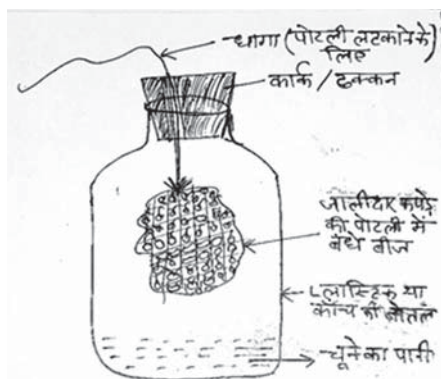 धागा (पोटली लटकाने के
लिए
कार्क / ढक्कन
जालीदार कपड़े
की पोटली में
बंधे बीज
प्लास्टिक या
काँच की बोतल
चूने का पानी